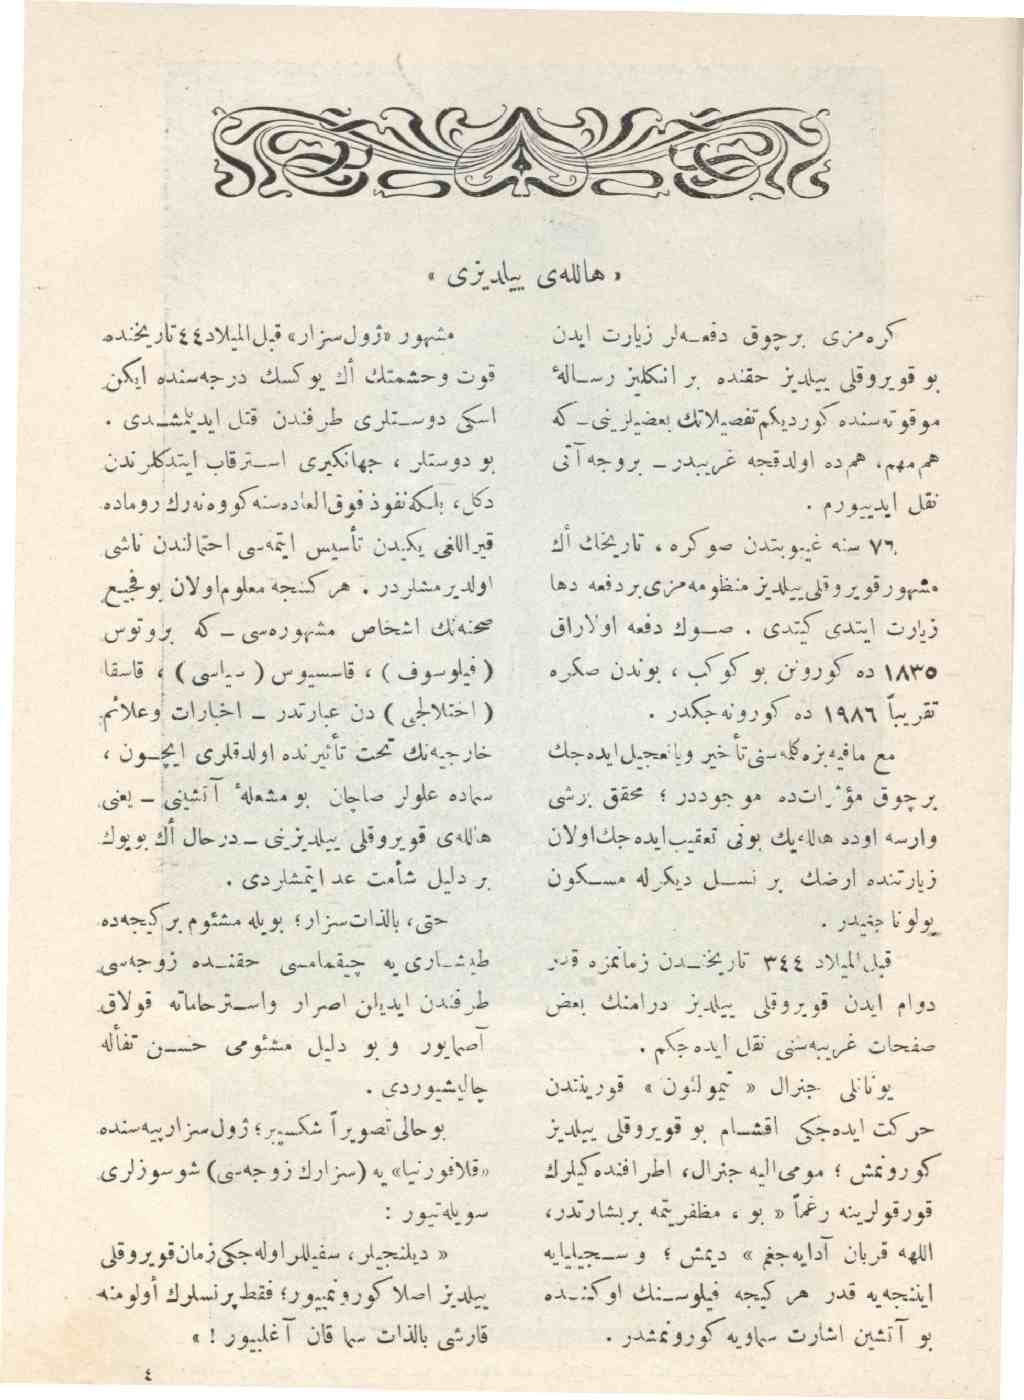 « هاللەی ییلدیزی »
كره‌مزی برچوق دفعه‌لر زیارت ایدن
بو قویروقلی ییلدیز حقنده بر انكلیز رساله‌ٔ
موقوته‌سنده كوردیكم تفصیلاتك بعضیلرینی ـ كه
هم مهم، هم‌ده اولدقجه غریبدر ـ بروجه آتی
نقل ایدییورم .
٧٦ سنه غیبوبتدن صوكره ، تاریخك اك
مشهور قویروقلی ییلدیز منظومه‌مزی بردفعه دها
زیارت ایتدی كیتدی . صوك دفعه اولارق
١٨٣٥ ده كورونن بو كوكب ، بوندن صكره
تقریباً ١٩٨٦ ده كورونه‌جكدر .
مع مافیه بزه كلمه‌سنی تأخیر ویا تعجیل ایده‌جك
برچوق مؤثرات‌ده موجوددر ؛ محقق برشی
وارسه اوده هاللەیك بونی تعقیب ایده‌جك اولان
زیارتنده ارضك بر نسل دیكرله مسكون
بولوناجغیدر .
قبل‌المیلاد ٣٤٤ تاریخندن زمانمزه قدر
دوام ایدن قویروقلی ییلدیز درامنك بعض
صفحات غریبه‌سنی نقل ایده‌جكم .
یونانلی جنرال « تیمولئون » قورینتدن
حركت ایده‌جكی اقشام بو قویروقلی ییلدیز
كورونمش ؛ مومی‌الیه جنرال، اطرافنده‌كیلرك
قورقولرینه رغماً « بو ، مظفریتمه بربشارتدر،
اللهه قربان آدایه‌جغم » دیمش ؛ و سجیلیایه
ایننجه‌یه قدر هر كیجه فیلوسنك اوكنده
بو آتشین اشارت سماویه كورونمشدر .
مشهور «ژول سزار» قبل‌المیلاد ٤٤ تاریخنده
قوت وحشمتك اك یوكسك درجه‌سنده ایكن
اسكی دوستلری طرفندن قتل ایدیلمشدی .
بو دوستلر ، جهانكیری استرقاب ایتدكلرندن
دكل، بلكه نفوذ فوق‌العاده‌سنه كووه‌نه‌رك روماده
قیراللغی یكیدن تأسیس ایتمه‌سی احتمالندن ناشی
اولدیرمشلردر . هركسجه معلوم اولان بو فجیع
صحنه‌نك اشخاص مشهوره‌سی ـ كه بروتوس
( فیلوسوف ) ، قاسسیوس ( سیاسی ) ، قاسقا
( اختلالجی ) دن عبارتدر ـ اخبارات وعلائم
خارجیه‌نك تحت تأثیرنده اولدقلری ایچون ،
سماده علولر صاچان بو مشعلهٔ آتشینی ـ یعنی
هاللەی قویروقلی ییلدیزینی ـ درحال اك بویوك
بر دلیل شأمت عد ایتمشلردی .
حتی، بالذات سزار؛ بویله مشئوم بركیجه‌ده
طیشاری‌یه چیقمامسی حقنده زوجه‌سی
طرفندن ایدیلن اصرار واسترحاماته قولاق
آصمایور و بو دلیل مشئومی حسن تفأله
چالیشیوردی .
بوحالی تصویراً شكسپیر؛ ژول سزار پیه‌سنده
«قلافورنیا» یه (سزارك زوجه‌سی) شو سوزلری
سویله‌تیور :
« دیلنجیلر، سفیللر اوله‌جكی زمان قویروقلی
ییلدیز اصلا كورونمییور؛ فقط پرنسلرك أولومنه
قارشی بالذات سما قان آغلییور ! »
٤